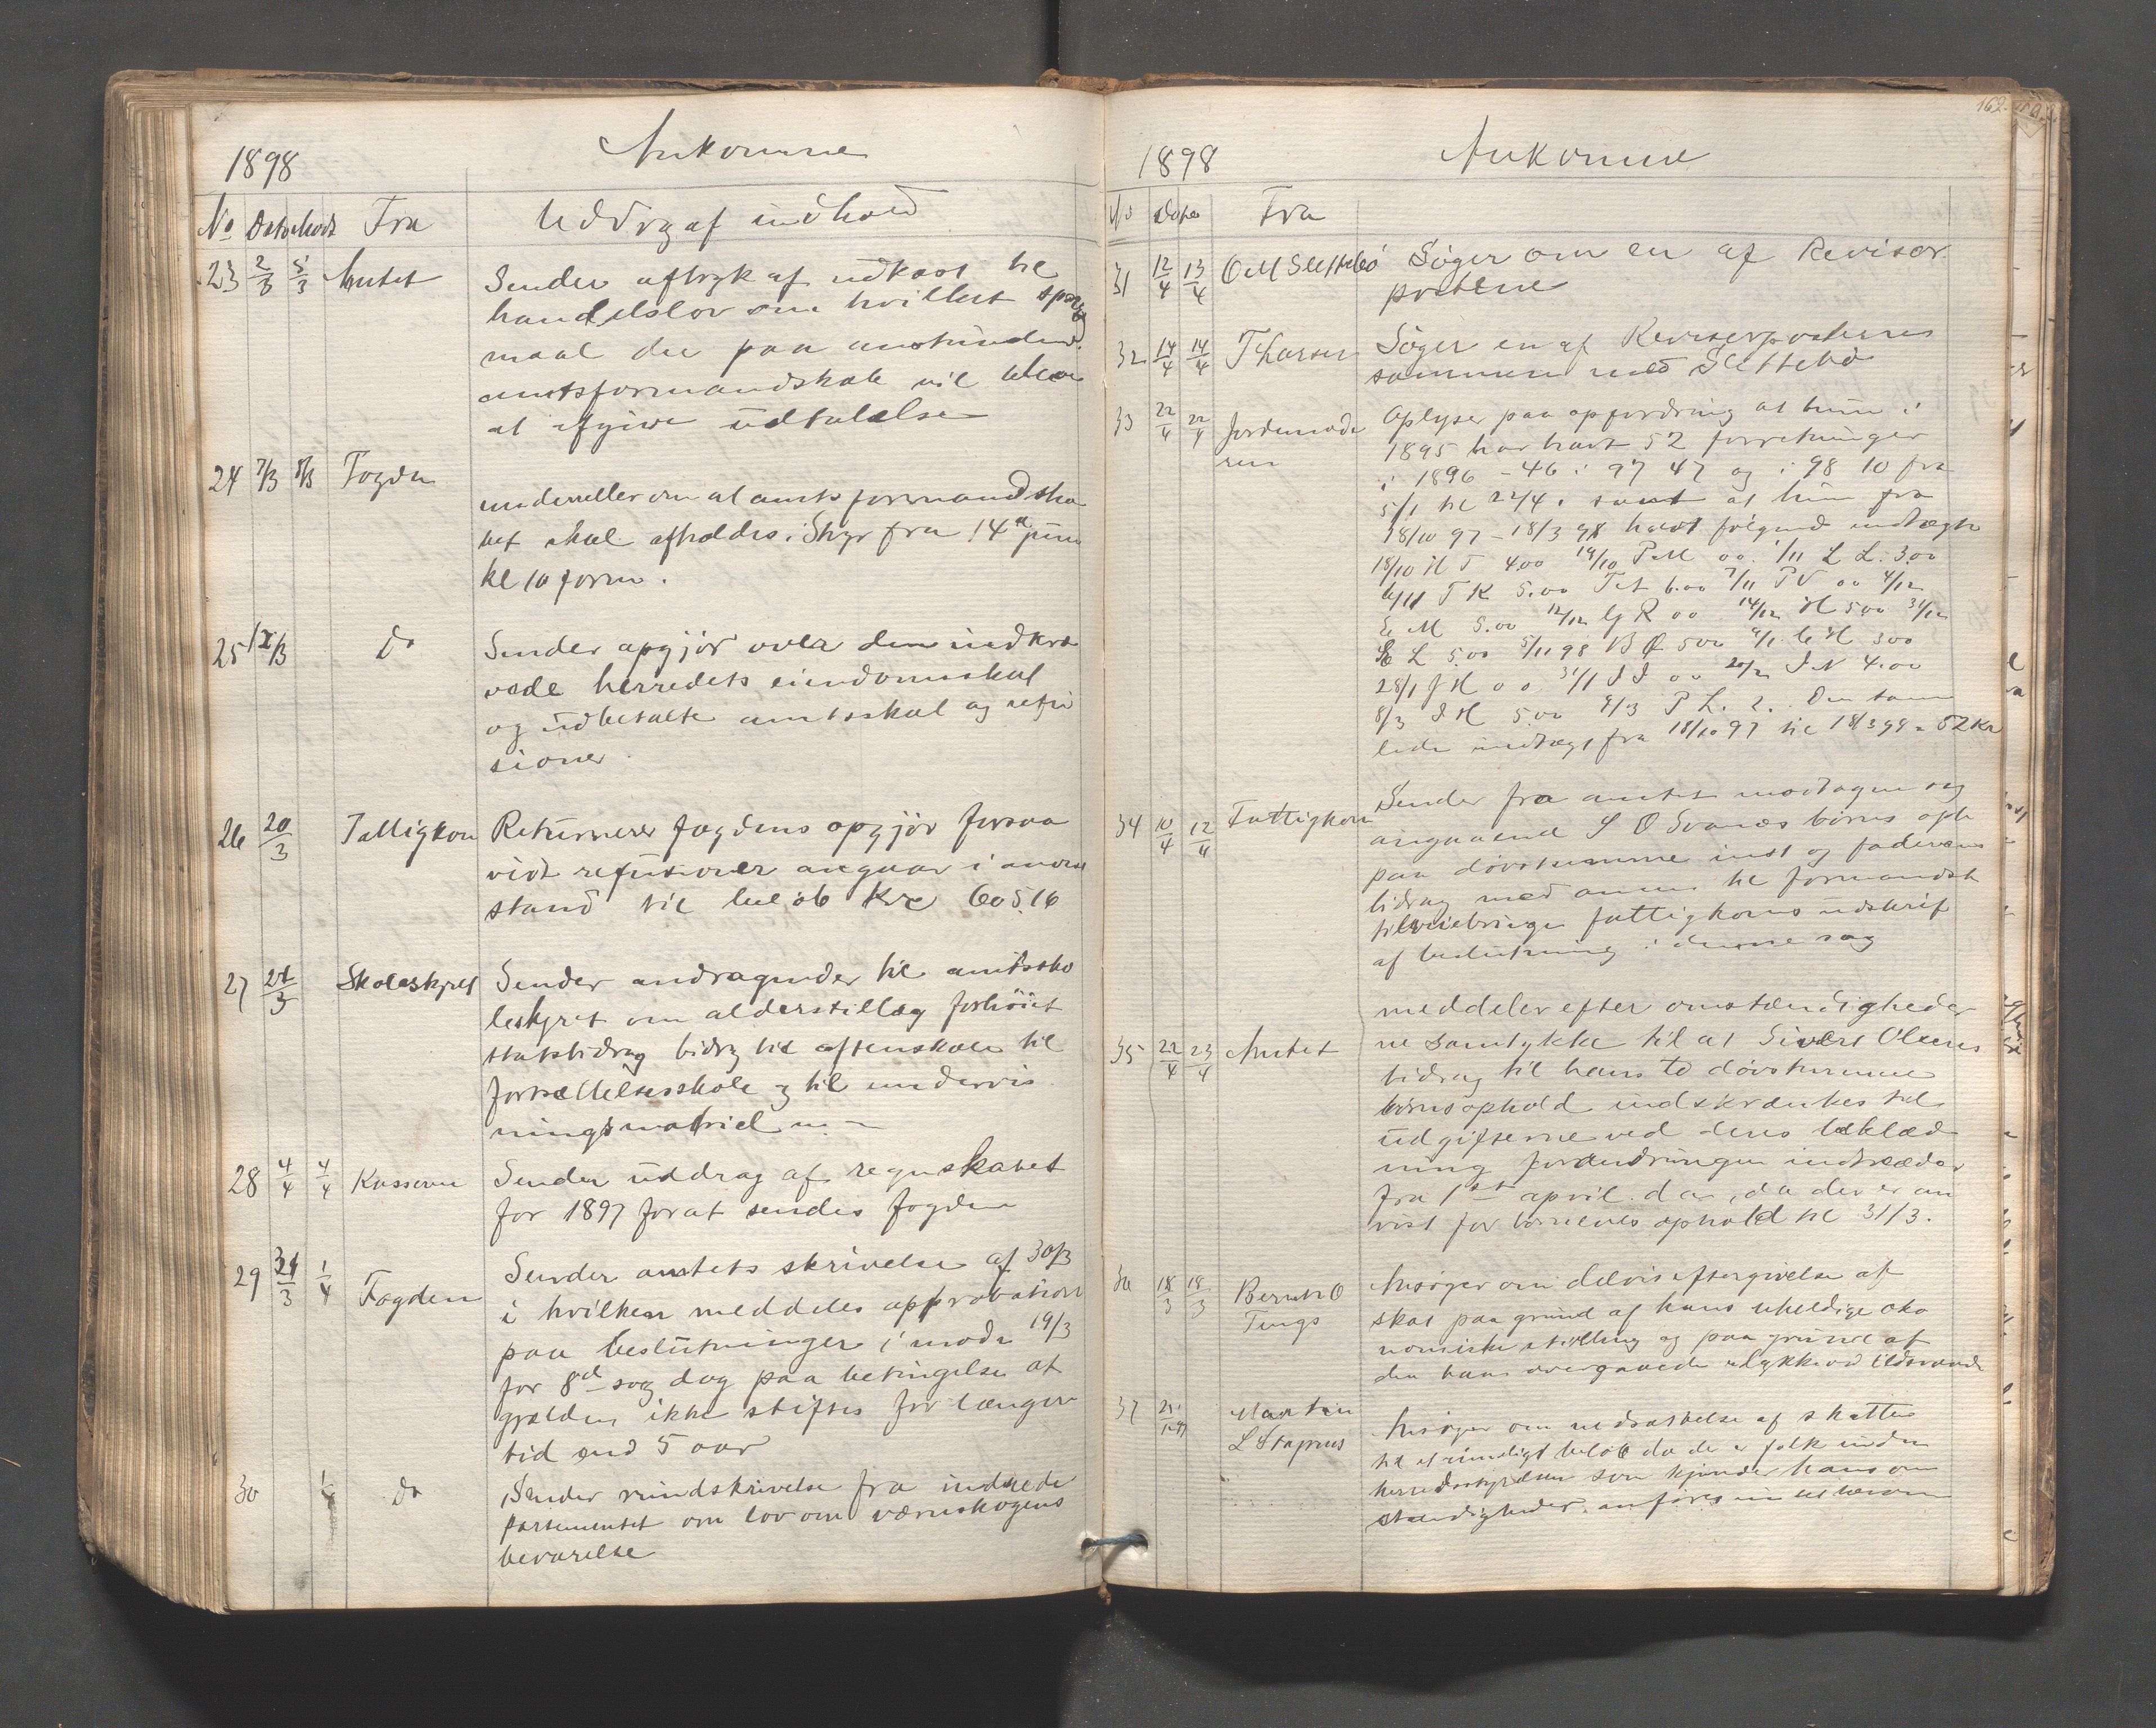 1898 Ankomne
No Dato Modt Fra Uddrg af indhold
23 2/3 5/3 Amtet Sender aftryk af udkast til
handelslov om hvilket spørgs
maal der paa anstundende
amtsformandskab vil blive
at afgive udtalelse
24 7/3 8/3 Fogden
underretter om at amtsformandska
bet skal afholdes i Stgr fra 14d juni
kl 10 form.
25 12/3 Do Sender opgjør over den indkræ
vede herredets eiendomsskat
og udbetalte amtsskat og refu
sioner.
26 20/3 Fattigkom Returnerer fogdens opgjør forsaa
vidt refusioner angaar i anvist
stand til beløb Kr 605.16
27 24/3 Skolestyret Sender andragender til amtssko
lestyret om alderstillæg forhöiet
statsbidrag bidrg til aftenskole til
fortsættelsesskole og til undervis
ningsmatriel m.
28 4/4 4/4 Kasseren Sender uddrag af regnskabet
for 1897 forat sendes fogden
29 31/3 1/4 Fogden Sender amtets skrivelse af 30/3
i hvilken meddeles approbation
paa beslutninger i møde 19/3
for 8d sog dog paa betingelse at
gjælden ikke stiftes for længere
tid end 5 aar
30 1/4 Do Sender rundskrivelse fra indrede
partementet om lov om værnskogens
bevarelse
162.
1898 Ankomne
No Dato Fra
31 12/4 13/4 O M Slettebö Söger om en af Revisor
posterne
32 14/4 14/4 T Larsen Söger en af Revisorposterne
sammen med Slettebö
33 22/4 22/4 Jordemode Oplyser paa opfordring at hun i
ren 1895 har havt 52 forretninger
i 1896 - 46 i 97 47 og i 98 10 fra
5/1 til 22/4. samt at hun fra
18/10 97 - 18/3 98 havt følgende indtægter
18/10 H T 4.00 19/10 P M 00 1/11 L L. 3.00
6/11 T K 5.00 T A 6.00 7/11 P V 00 4/12
E M 5.00 12/12 G R 00 14/12 H 5.00 31/12
L 5.00 5/1 98 B Ø 5.00 9/1 H 3.00
28/1 J H 00 31/1 J J 00 20/2 J N 4.00
8/3 J H 5.00 9/3 P L. 2. Den sam
lede indtægt fra 18/10 97 til 18/3 98 = 52 Kr
34 10/4 12/4 Fattigkom Sender fra amtet modtagne sag
angaaend S O Svanæs børns oph
paa døvstumme inst og faderens
bidrag med anm. til formandsk
tilveiebringe fattigkoms udskrif
af beslutning i denne sag
35 22/4 23/4 Amtet meddeler efter omstændigheder
ne samtykke til at Sivert Olsens
bidrag til hans to døvstumme
børns ophold indskrænkes til
udgifterne ved dens beklæd
ning forandringen indtræder
fra 1st april d a, da der er an
vist for børnenes ophold til 31/3.
36 18/3 18/3 Bernt O Ansøger om delvis eftergivelse af
Tungs skat paa grund af hans uheldige øko
nomiske stilling og paa grund af
den ham overgaaede ulykke ved ildsvaade
37 Martin Ansøger om nedsættelse af skatten
L Stapnes til et rimeligt beløb da der er folk inden
herredsstyrelsen som kjender hans om
stændigheder anføres